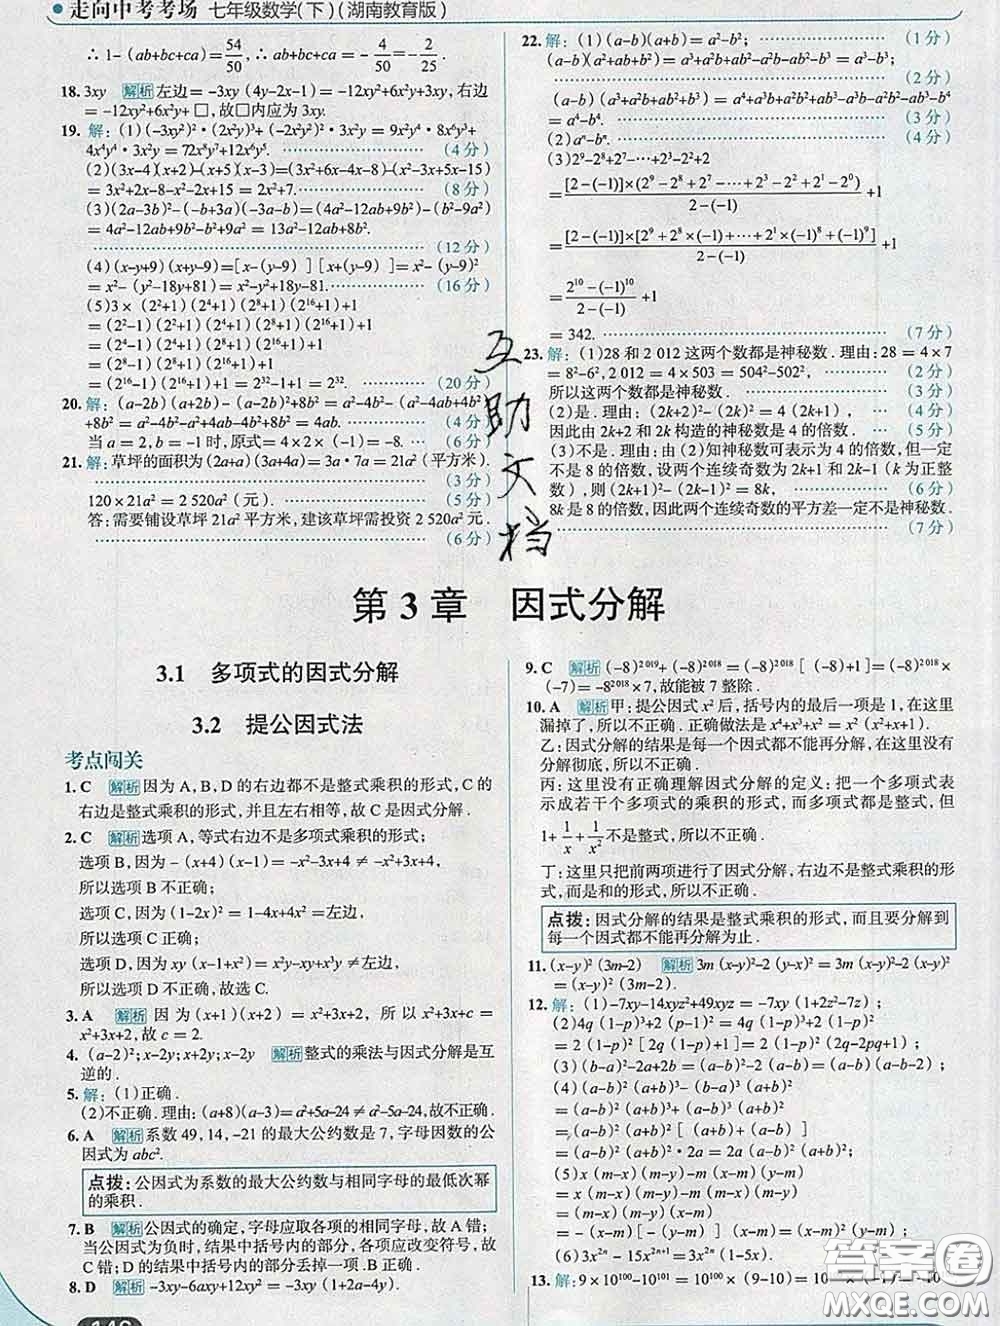 走向中考考场 七年级数学(下)(湖南教育版)
∴ 1-(ab+bc+ca)=54/50,ab+bc+ca=-4/50=-2/25.
18. 3xy 解析 左边=-3xy(4y-2x-1)=-12xy²+6x²y+3xy,右边
=-12xy²+6x²y+□,故□内应为3xy.
19. 解:(1)(-3xy²)²·(2x²y)³+(-2x²y²)²·3x²y=9x²y⁴·8x⁶y³+
4x⁴y⁴·3x²y=72x⁸y⁷+12x⁶y⁵. (4分)
(2)(3x-4)(x+2)-(x+5)(x-3)=(3x²+6x-4x-8)-(x²-3x+5x-15)
=3x²+2x-8-x²-2x+15=2x²+7. (8分)
(3)(2a-3b)²-(-b+3a)(-3a-b)=(4a²-12ab+9b²)-(b²-9a²)
=4a²-12ab+9b²-b²+9a²=13a²-12ab+8b².
(12分)
(4)(x-y+9)(x+y-9)=[x-(y-9)][x+(y-9)]
=x²-(y²-18y+81)=x²-y²+18y-81. (16分)
(5)3×(2²+1)(2⁴+1)(2⁸+1)(2¹⁶+1)+1
=(2²-1)(2²+1)(2⁴+1)(2⁸+1)(2¹⁶+1)+1
=(2⁴-1)(2⁴+1)(2⁸+1)(2¹⁶+1)+1
=(2⁸-1)(2⁸+1)(2¹⁶+1)+1
=(2¹⁶-1)(2¹⁶+1)+1=2³²-1+1=2³². (20分)
20. 解:(a-2b)(a+2b)-(a-2b)²+8b²=a²-4b²-(a²-4ab+4b²)
+8b²=a²-4b²-a²+4ab-4b²+8b²=4ab. (4分)
当a=2,b=-1时,原式=4×2×(-1)=-8. (6分)
21. 解:草坪的面积为(2a+a)(3a+4a)=3a·7a=21a²(平方米).
(3分)
120×21a²=2 520a²(元). (5分)
答:需要铺设草坪21a²平方米,建该草坪需投资2 520a²元.
(6分)
22. 解:(1)(a-b)(a+b)=a²-b²; (1分)
(a-b)(a²+ab+b²)=a³+a²b+ab²-a²b-ab²-b³=a³-b³;
(2分)
(a-b)(a³+a²b+ab²+b³)=a⁴+a³b+a²b²+ab³-a³b-a²b²-ab³-b⁴
=a⁴-b⁴. (3分)
(2)aⁿ-bⁿ. (4分)
(3)2⁹-2⁸+2⁷-…+2³-2²+2
=[2-(-1)]×(2⁹-2⁸+2⁷-…+2³-2²+2¹-2⁰)/2-(-1)+1
=[2-(-1)]×[2⁹+2⁸×(-1)+…+2¹×(-1)⁸+(-1)⁹]/2-(-1)+1
=2¹⁰-(-1)¹⁰/2-(-1)+1
=342. (7分)
23. 解:(1)28和2 012这两个数都是神秘数.理由:28=4×7
=8²-6²,2 012=4×503=504²-502², (2分)
所以这两个数都是神秘数. (3分)
(2)是.理由:(2k+2)²-(2k)²=4(2k+1), (4分)
因此由2k+2和2k构造的神秘数是4的倍数. (5分)
(3)不是.理由:由(2)知神秘数可表示为4的倍数,但一定
不是8的倍数,设两个连续奇数为2k+1和2k-1(k为正整
数),则(2k+1)²-(2k-1)²=8k, (6分)
8k是8的倍数,因此两个连续奇数的平方差一定不是神秘数.
(7分)
互助文档
第3章 因式分解
3.1 多项式的因式分解
3.2 提公因式法
考点闯关
1. C 解析 因为A,B,D的右边都不是整式乘积的形式,C的
右边是整式乘积的形式,并且左右相等,故C是因式分解.
2. C 解析 选项A,等式右边不是多项式乘积的形式;
选项B,因为-(x+4)(x-1)=-x²-3x+4≠左边,
所以选项B不正确;
选项C,因为(1-2x)²=1-4x+4x²=左边,
所以选项C正确;
选项D,因为xy(x-1+x²)=x²y-xy+x³y≠左边,
所以选项D不正确,故选C.
3. A 解析 因为(x+1)(x+2)=x²+3x+2,所以x²+3x+c=
x²+3x+2,故c=2.
4. (a-2)²;x-2y;x+2y;x-2y 解析 整式的乘法与因式分解是互
逆的.
5. 解:(1)正确.
(2)不正确.理由:(a+8)(a-3)=a²+5a-24≠a²-5a-24.
6. A 解析 系数49,14,-21的最大公约数是7,字母因数的公
因式为abc².
点拨:公因式为系数的最大公约数与相同字母的最低次幂
的乘积.
7. B 解析 公因式的确定,字母应取各项的相同字母,故A错;
当公因式为负时,结果中括号内的部分,各项应改变符号,故
C错;D错在结果中括号内的部分丢掉一项.B正确.
8. D 解析 -3xy-6axy+12xy²=-3xy(1+2a-4y).
9. C 解析 (-8)²⁰¹⁹+(-8)²⁰¹⁸=(-8)²⁰¹⁸[(-8)+1]=(-8)²⁰¹⁸×
(-7)=-8²⁰¹⁸×7,故能被7整除.
10. A 解析 甲:提公因式x²后,括号内的最后一项是1,在这里
漏掉了,所以不正确.正确做法是x⁴+x³+x²=x²(x²+x+1).
乙:因式分解的结果是每一个因式都不能再分解,在这里没有
分解彻底,所以不正确.
丙:这里没有正确理解因式分解的定义:把一个多项式表
示成若干个多项式的乘积的形式,而多项式都是整式,但
1+1/x+1/x²不是整式,所以不正确.
丁:这里只把前两项进行了因式分解,右边不是乘积的形
式,而是和的形式,所以不正确.
点拨:因式分解的结果是整式乘积的形式,而且要分解到
每一个因式都不能再分解为止.
11. (x-y)²(3m-2) 解析 3m(x-y)²-2(y-x)²=3m(x-y)²-2(x-y)²
=(x-y)²(3m-2).
12. 解:(1)-7xy-14xyz²+49xyz=-7xy(1+2z²-7z);
(2)4q(1-p)³+2(p-1)²=4q(1-p)³+2(1-p)²
=2(1-p)²[2q(1-p)+1]=2(1-p)²(2q-2pq+1);
(3)(b-a)²-2a+2b=(b-a)²+2(b-a)=(b-a)(b-a+2);
(4)(a-b)²(a+b)³-(b-a)³(a+b)²
=(a-b)²(a+b)³+(a-b)³(a+b)²
=(a-b)²(a+b)²[(a+b)+(a-b)]
=(a-b)²(a+b)²·2a=2a(a-b)²(a+b)²;
(5)x(m-x)(m-y)-m(x-m)(y-m)
=x(m-x)(m-y)-m(m-x)(m-y)
=-(m-x)(m-y)(m-x)
(6)3x²ⁿ-15x²ⁿ⁺¹=3x²ⁿ(1-5x).
13. 解:9×10¹⁰⁰-10¹⁰¹=10¹⁰⁰×(9-10)=10¹⁰⁰×(-1)=-10
答案圈
MXQE.COM